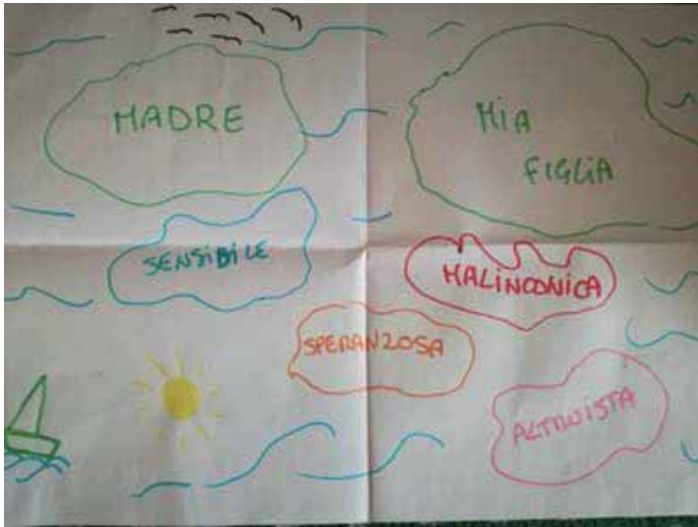 MADRE
MIA
FIGLIA
SENSIBILE
MALINCONICA
SPERANZOSA
ATTIVISTA